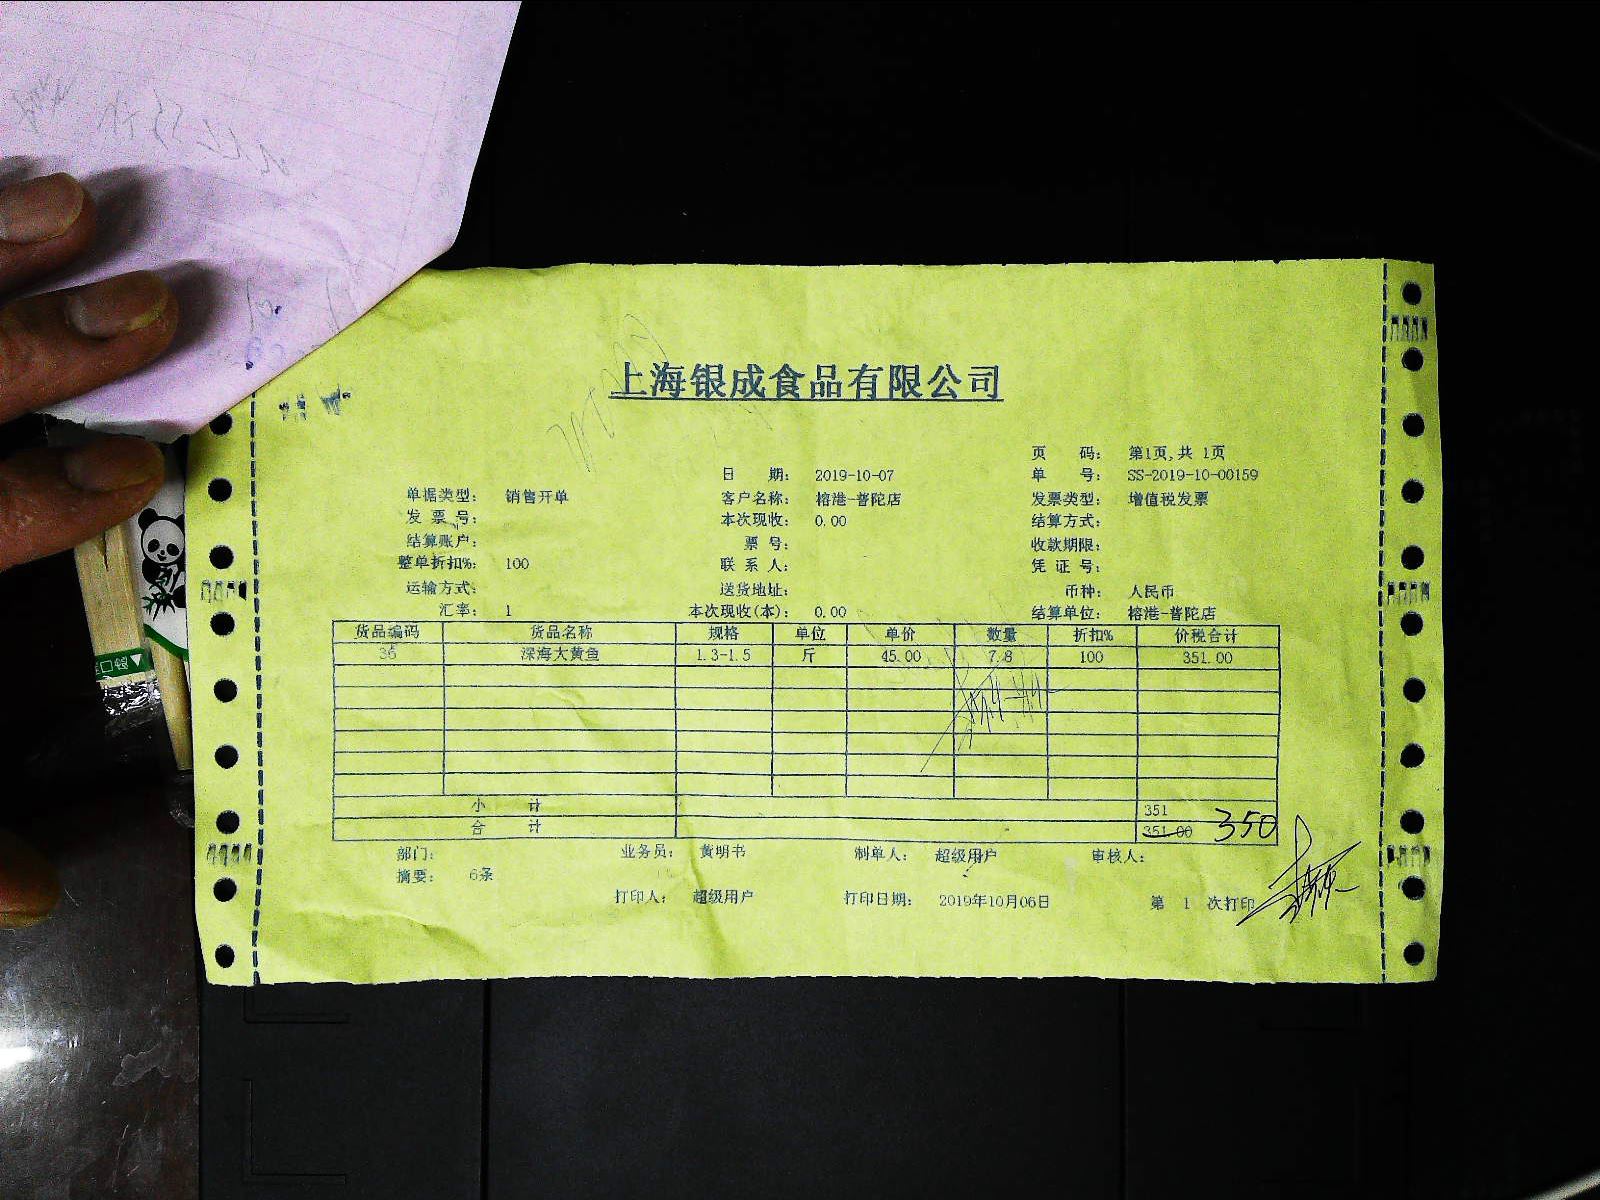 上海银成食品有限公司
页 码: 第1页,共 1页
日 期: 2019-10-07 单 号: SS-2019-10-00159
单据类型: 销售开单 客户名称: 榕港-普陀店 发票类型: 增值税发票
发 票 号: 本次现收: 0.00 结算方式:
结算账户: 票 号: 收款期限:
整单折扣%: 100 联 系 人: 凭 证 号:
运输方式: 送货地址: 币种: 人民币
汇率: 1 本次现收(本): 0.00 结算单位: 榕港-普陀店
货品编码 货品名称 规格 单位 单价 数量 折扣% 价税合计
36 深海大黄鱼 1.3-1.5 斤 45.00 7.8 100 351.00
小 计 351
合 计 351.00 350
部门: 业务员: 黄明书 制单人: 超级用户 审核人:
摘要: 6条
打印人: 超级用户 打印日期: 2019年10月06日 第 1 次打印